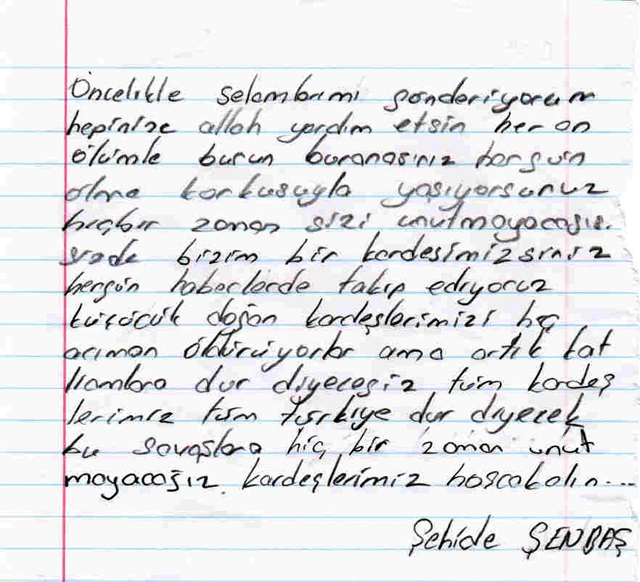 Öncelikle selamlarımı gönderiyorum
hepinize allah yardım etsin her an
ölümle burun buranasınız hergün
ölme korkusuyla yaşıyorsunuz
hiçbir zaman sizi unutmayacağız.
sizde bizim bir kardeşimizsiniz
hergün haberlerde takip ediyoruz
küçücük doğan kardeşlerimizi hiç
acıman öldürüyorlar ama artık kat
liamlara dur diyeceğiz tüm kardeş
lerimiz tüm türkiye dur diyecek
bu savaşlara hiç bir zaman unut
mayacağız. kardeşlerimiz hoşcakalın...
Şehide ŞENBAŞ